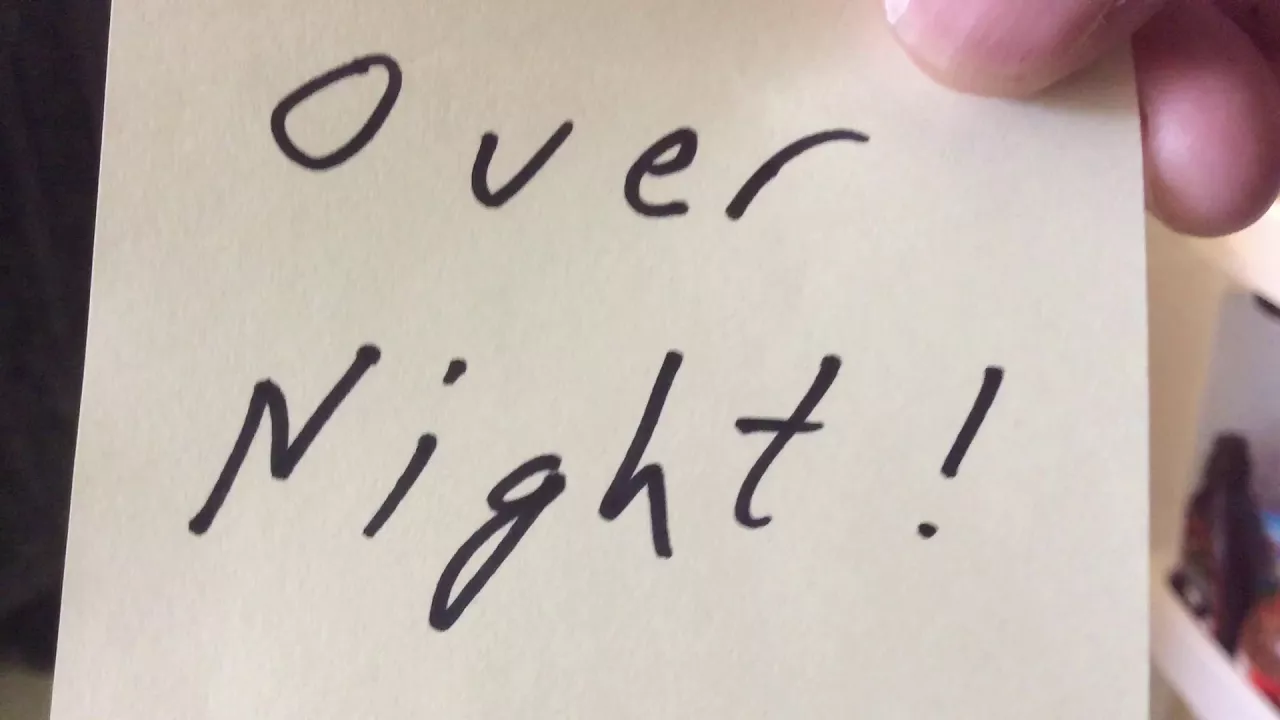 Over
Night!